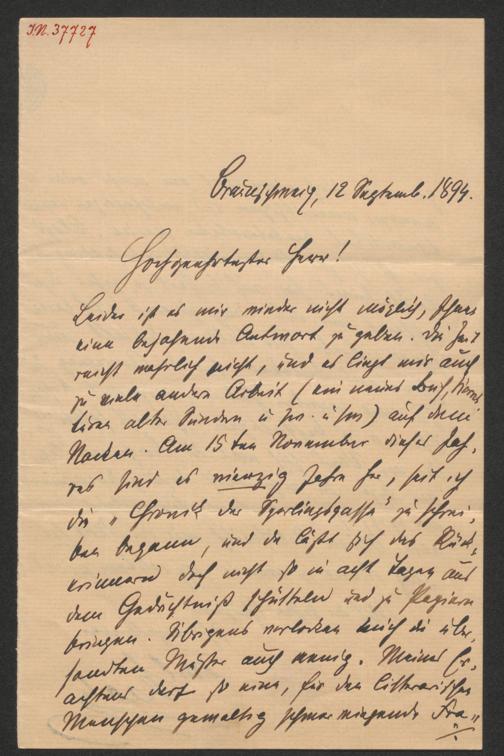 I.N. 37727
Braunschweig, 12 Septemb. 1894.
Hochgeehrtester Herr!
Leider ist es mir wieder nicht möglich, Ihnen
eine bejahende Antwort zu geben. Die Zeit
reicht wahrlich nicht, und es liegt mir auch
zu viele andere Arbeit (ein neues Buch,
turen alter Sünden u s w. u s w) auf dem
Nacken. Am 15 ten November dieses Jah,
res sind es vierzig Jahre her, seit ich
die „Chronik der Sperlingsgasse" zu schrei,
ben begann, und da läßt sich das Rück,
erinnern doch nicht so in acht Tagen aus
dem Gedächtniß schütteln und zu Papiere
bringen. Übrigens verlocken mich die über,
sandten Muster auch wenig. Meines Er,
achtens darf so eine, für den litterarischen
Menschen gewaltig schwer wiegende Fra„